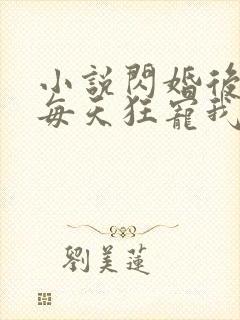 小說閃婚後
每天狂寵我
劉美蓮